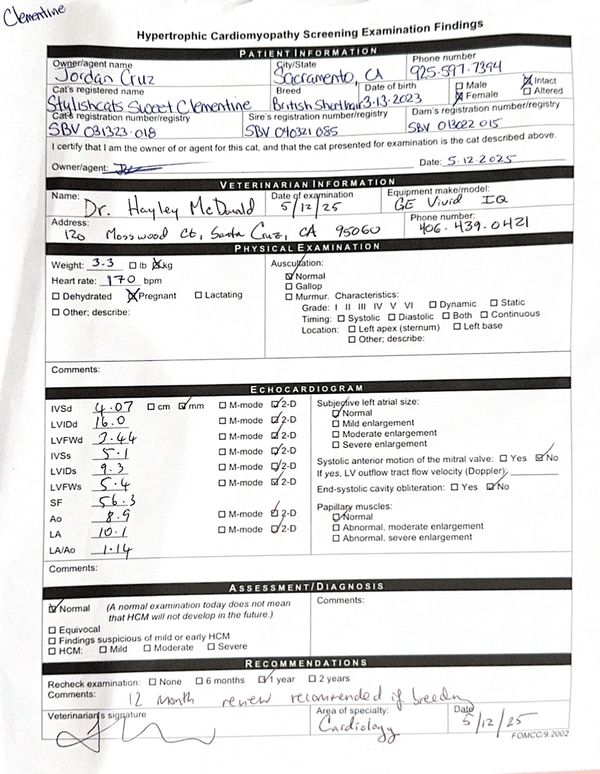 Clementine
Hypertrophic Cardiomyopathy Screening Examination Findings
PATIENT INFORMATION
Owner/agent name City/State Phone number
Jordan Cruz Sacramento, CA 925.597.7394
Cat's registered name Breed Date of birth □ Male ☒ Intact
Stylishcats Sweet Clementine British Shorthair 3.13.2023 ☒ Female □ Altered
Cat's registration number/registry Sire's registration number/registry Dam's registration number/registry
SBV 031323.018 SBV 040321 085 SBV 013022 015
I certify that I am the owner of or agent for this cat, and that the cat presented for examination is the cat described above.
Owner/agent: Date: 5.12.2025
VETERINARIAN INFORMATION
Name: Dr. Hayley McDonald Date of examination 5/12/25 Equipment make/model: GE Vivid IQ
Address: 120 Mosswood Ct, Santa Cruz, CA 95060 Phone number: 406.439.0421
PHYSICAL EXAMINATION
Weight: 3.3 □ lb ☒ kg Auscultation:
☑ Normal
Heart rate: 170 bpm □ Gallop
□ Dehydrated ☒ Pregnant □ Lactating □ Murmur. Characteristics:
Grade: I II III IV V VI □ Dynamic □ Static
□ Other; describe: Timing: □ Systolic □ Diastolic □ Both □ Continuous
Location: □ Left apex (sternum) □ Left base
□ Other; describe:
Comments:
ECHOCARDIOGRAM
IVSd 4.07 □ cm ☑ mm □ M-mode ☑ 2-D Subjective left atrial size:
LVIDd 16.0 □ M-mode ☑ 2-D ☑ Normal
□ Mild enlargement
LVFWd 3.44 □ M-mode ☑ 2-D □ Moderate enlargement
□ Severe enlargement
IVSs 5.1 □ M-mode ☑ 2-D Systolic anterior motion of the mitral valve: □ Yes ☑ No
LVIDs 9.3 □ M-mode ☑ 2-D If yes, LV outflow tract flow velocity (Doppler):
LVFWs 5.4 □ M-mode ☑ 2-D End-systolic cavity obliteration: □ Yes ☑ No
SF 56.3 Papillary muscles:
Ao 8.9 □ M-mode ☑ 2-D ☑ Normal
LA 10.1 □ M-mode ☑ 2-D □ Abnormal, moderate enlargement
LA/Ao 1.14 □ Abnormal, severe enlargement
Comments:
ASSESSMENT/DIAGNOSIS
☑ Normal (A normal examination today does not mean that HCM will not develop in the future.) Comments:
□ Equivocal
□ Findings suspicious of mild or early HCM
□ HCM: □ Mild □ Moderate □ Severe
RECOMMENDATIONS
Recheck examination: □ None □ 6 months ☑ 1 year □ 2 years
Comments: 12 month review recommended if breeding
Veterinarian's signature Area of specialty: Cardiology Date 5/12/25
FOMCC/9.2002